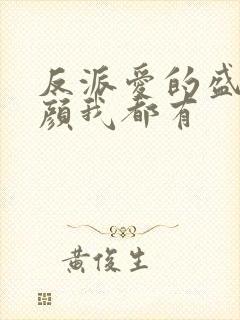 反派愛的盛
顏我都有
黃俊生